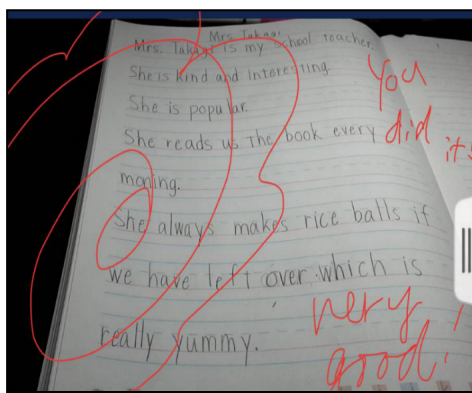 Mrs. Takagi
Mrs. Takagi is my school teacher.
She is kind and interesting.
She is popular.
She reads us the book every
morning.
She always makes rice balls if
we have left over which is
really yummy.
You
did
it
very
good!